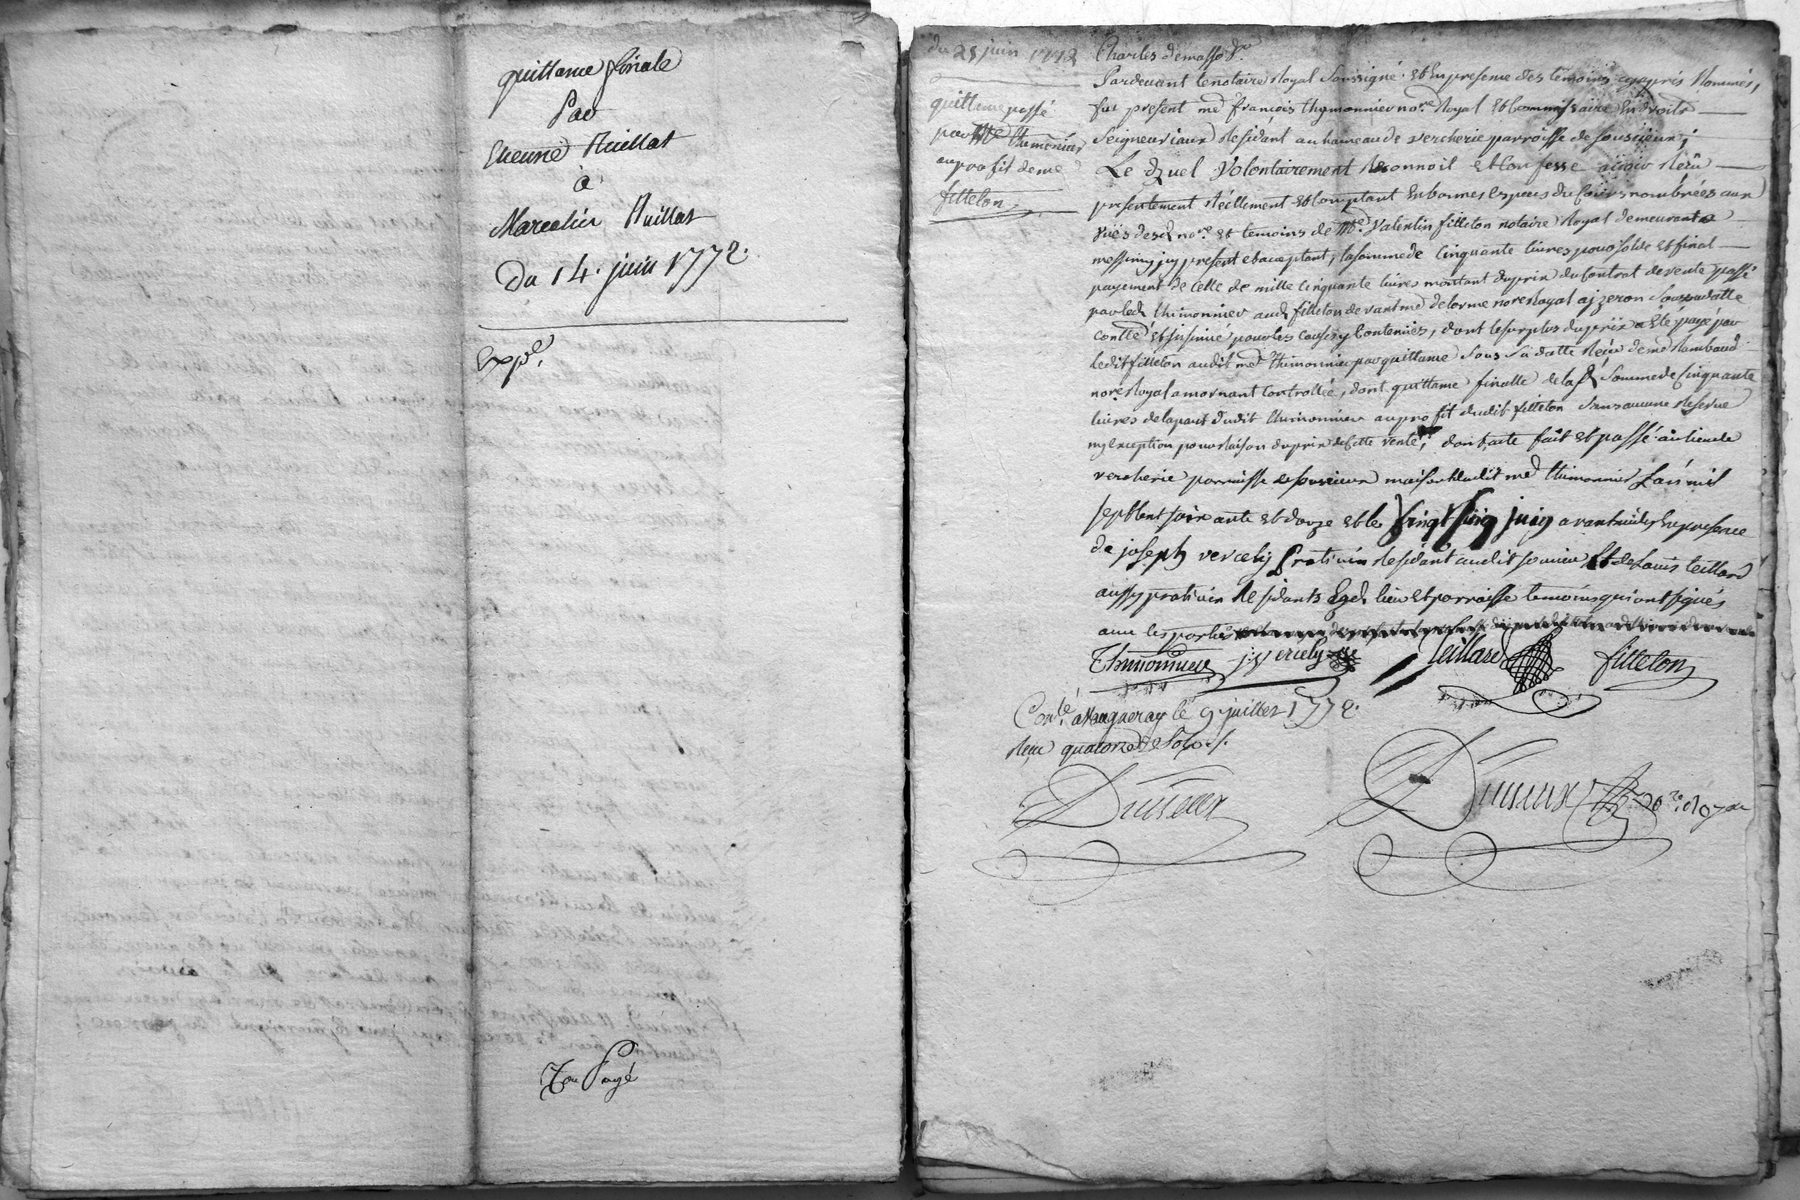 quittance finale
Par
Etienne Ruillat
a
Marcelin Ruillat
Du 14. juin 1772.
Exp.é
Payé
du 25 juin 1772
quittance passé
par Me thimonier
au profit de me
fitteton
Pardevant le notaire Royal soussigné et en presence des temoins cyapprés nommés,
fut present me françois thymonnier nore Royal et commissaire en droits
seigneuriaux residant au hameau de vercherie parroisse de
Le quel volontairement Reconnoit et Confesse avoir Reçu
presentement réellement et comptant en bonnes especes du cours nombrées aux
vües desd nore et temoins de Me Valentin fitteton notaire Royal demeurant a
messimy present et acceptant, la somme de cinquante livres pour solde et final
payement de celle de mille cinquante livres montant du prix du contrat de vente passé
par led thimonnier aud fitteton devant me delorme nore Royal a jzeron sous sa datte
contté et insinué pour les causes y contenues, dont le surplus du prix a eté payé par
ledit fitteton audit me thimonnier par quittance sous sa datte Reçu de me Rambaud
nore Royal a mornant controllée, dont quittance finalle de la de somme de cinquante
livres de la part dudit thimonnier au profit dudit fitteton sans aucune Reserve
ny exception pour Raison du prix de cette vente; dont acte fait et passé au lieu de
vercherie parroisse de maison dudit me thimonnier L'an mil
sept cent soixante et douze et le vingt cinq juin avant midy en presence
de joseph vercely praticien residant audit et de Louis teillard
aussy praticien Residants aud. lieu et parroisse temoins qui ont signés
avec les parties
Thimonnier j. Vercely Teillard fitteton
Conlé a Vaugneray le 9 juillet 1772.
Reçu quatorze sols